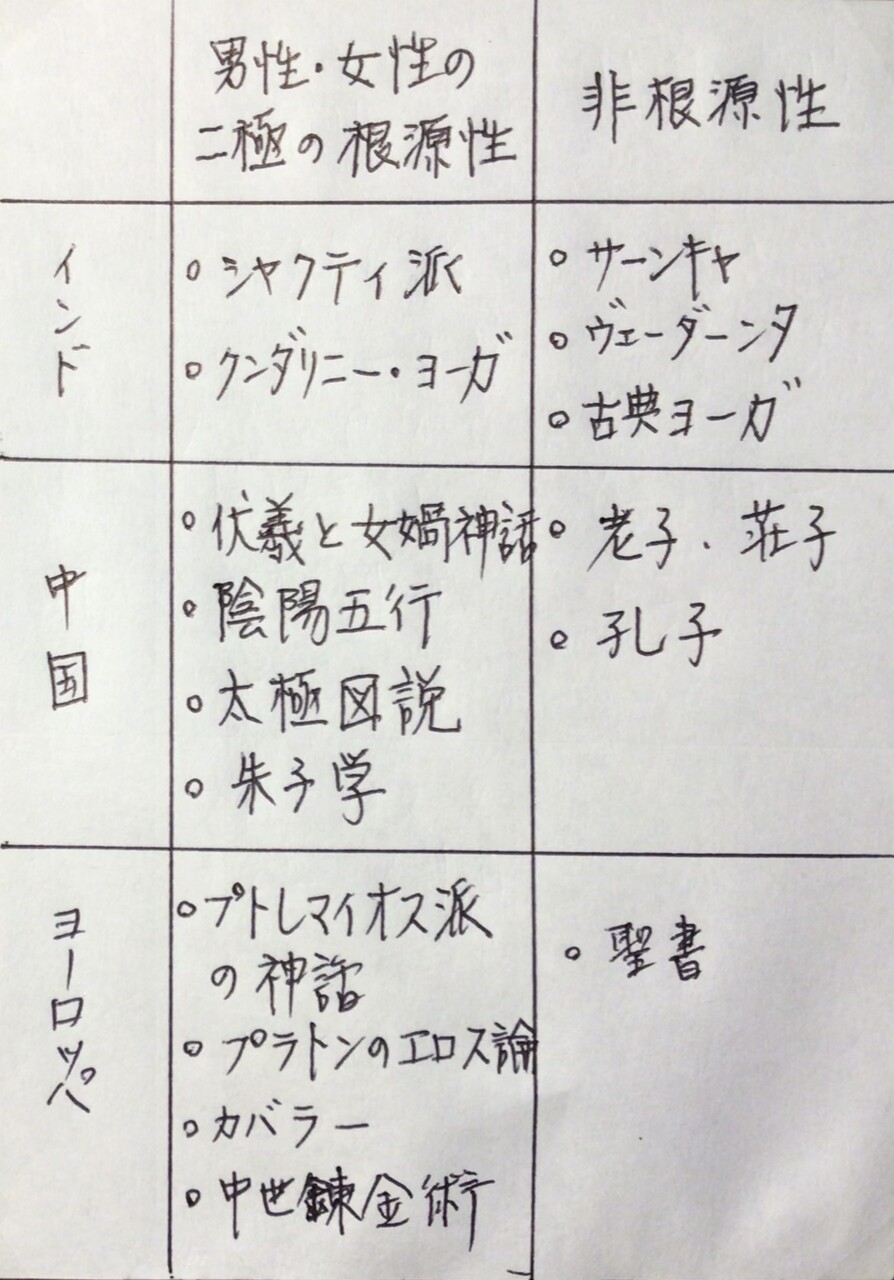 男性・女性の
二極の根源性
非根源性
インド
○ シャクティ派
○ クンダリニー・ヨーガ
○ サーンキャ
○ ヴェーダーンタ
○ 古典ヨーガ
中国
○ 伏羲と女媧神話
○ 陰陽五行
○ 太極図説
○ 朱子学
○ 老子、荘子
○ 孔子
ヨーロッパ
○ プトレマイオス派
の神話
○ プラトンのエロス論
○ カバラー
○ 中世錬金術
○ 聖書